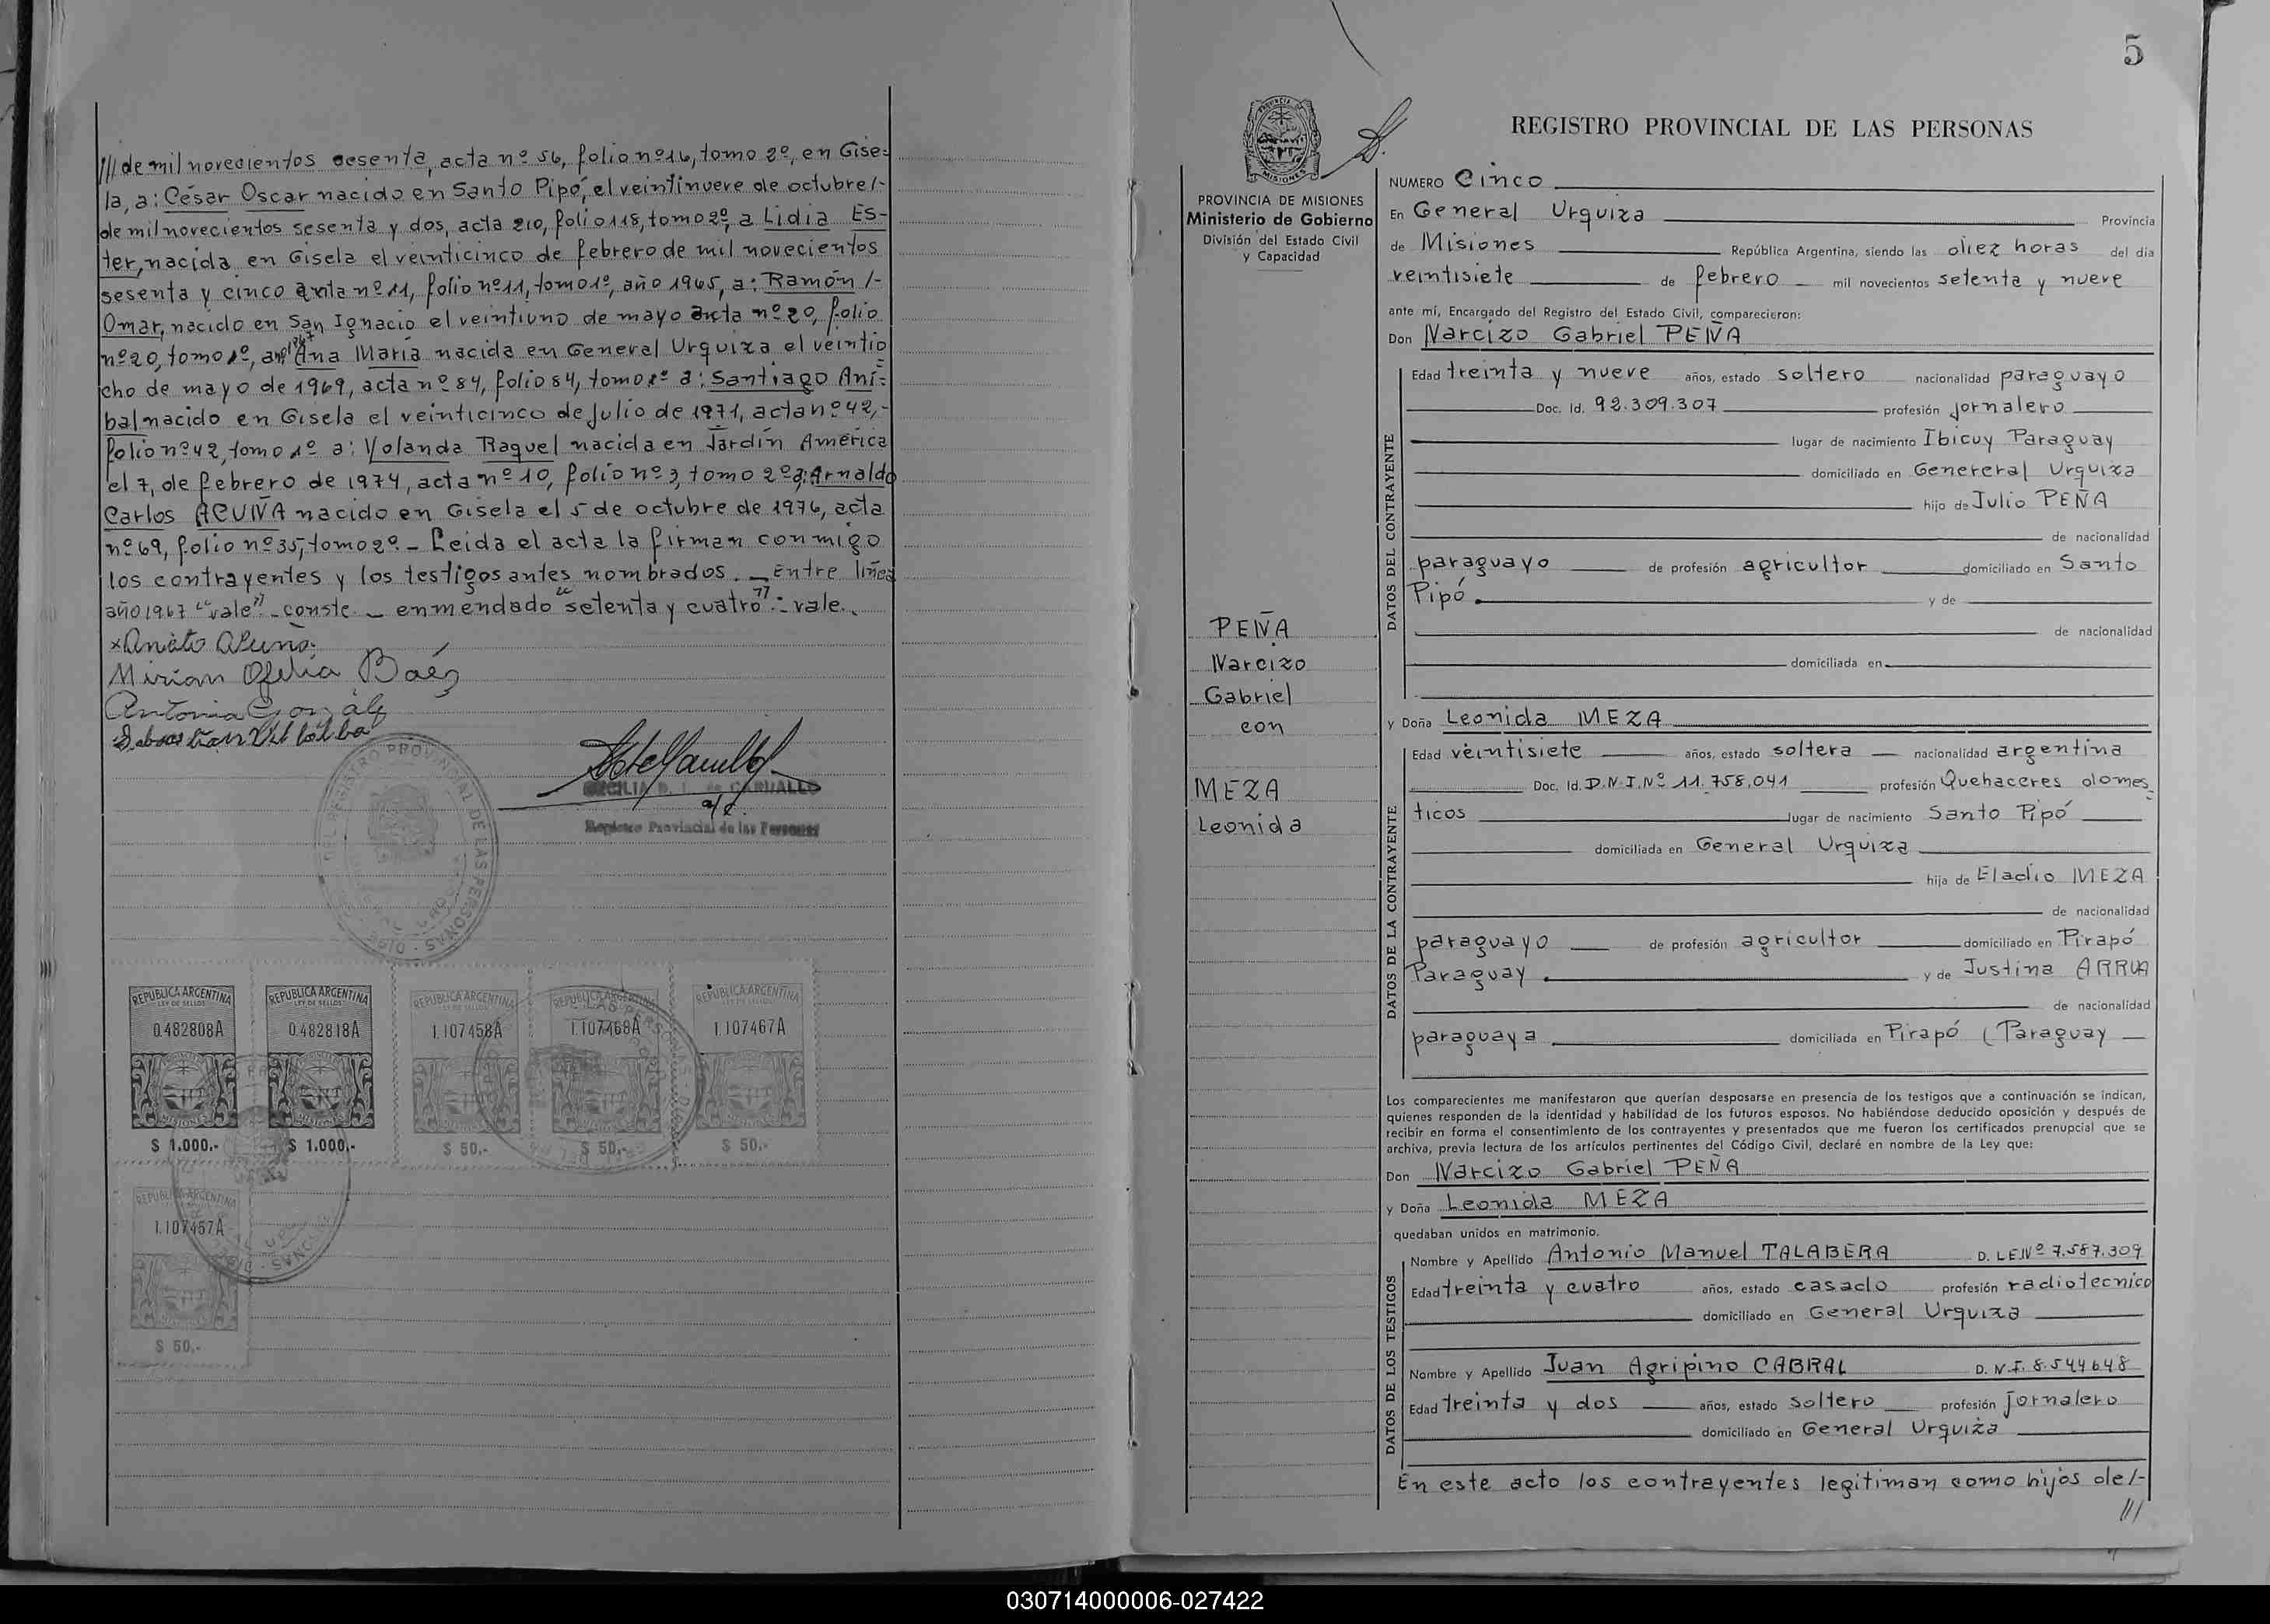 /// de mil novecientos sesenta, acta nº 56, folio nº 16, tomo 2º, en Gise=
la, a: César Oscar nacido en Santo Pipó, el veintinueve de octubre/-
de mil novecientos sesenta y dos, acta 210, folio 118, tomo 2º, a Lidia Es-
ter, nacida en Gisela el veinticinco de febrero de mil novecientos
sesenta y cinco acta nº 11, folio nº 11, tomo 1º, año 1965, a: Ramón /-
Omar, nacido en San Ignacio el veintiuno de mayo acta nº 20, folio
nº 20, tomo 1º, a: Ana María nacida en General Urquiza el veintio
cho de mayo de 1969, acta nº 84, folio 84, tomo 1º a: Santiago Aní=
bal nacido en Gisela el veinticinco de julio de 1971, acta nº 42,-
folio nº 42, tomo 1º a: Yolanda Raquel nacida en Jardín América
el 7, de febrero de 1974, acta nº 10, folio nº 3, tomo 2º a: Arnaldo
Carlos ACUÑA nacido en Gisela el 5 de octubre de 1976, acta
nº 69, folio nº 35, tomo 2º.- Leida el acta la firman conmigo
los contrayentes y los testigos antes nombrados. - Entre línea
año 1967 "vale" - conste - enmendado "setenta y cuatro": vale.
Mirian Ofelia Baéz
Antonia
REGISTRO PROVINCIAL DE LAS PERSONAS
CARVALLO
a/c.
Registro Provincial de las Personas
REPUBLICA ARGENTINA REPUBLICA ARGENTINA REPUBLICA ARGENTINA REPUBLICA ARGENTINA REPUBLICA ARGENTINA
LEY DE SELLOS LEY DE SELLOS
0.482808A 0.482818A 1.107458A 1.107468A 1.107467A
MISIONES MISIONES
$ 1.000.- $ 1.000.- $ 50.- $ 50.- $ 50.-
REPUBLICA ARGENTINA
1.107457A
$ 50.-
5
MISIONES
REGISTRO PROVINCIAL DE LAS PERSONAS
PROVINCIA DE MISIONES
Ministerio de Gobierno
División del Estado Civil
y Capacidad
NUMERO Cinco
En General Urquiza Provincia
de Misiones República Argentina, siendo las diez horas del día
veintisiete de febrero mil novecientos setenta y nueve
ante mí, Encargado del Registro del Estado Civil, comparecieron:
Don Narcizo Gabriel PEÑA
DATOS DEL CONTRAYENTE
Edad treinta y nueve años, estado soltero nacionalidad paraguayo
Doc. Id. 92.309.307 profesión jornalero
lugar de nacimiento Ibicuy Paraguay
domiciliado en Genereral Urquiza
hijo de Julio PEÑA
de nacionalidad
paraguayo de profesión agricultor domiciliado en Santo
Pipó. y de
de nacionalidad
domiciliada en
PEÑA
Narcizo
Gabriel
con
MEZA
Leonida
y Doña Leonida MEZA
DATOS DE LA CONTRAYENTE
Edad veintisiete años, estado soltera nacionalidad argentina
Doc. Id. D.N.I.Nº 11.758.041 profesión Quehaceres domes
ticos lugar de nacimiento Santo Pipó
domiciliada en General Urquiza
hija de Eladio MEZA
de nacionalidad
paraguayo de profesión agricultor domiciliado en Pirapó
Paraguay. y de Justina ARRUA
de nacionalidad
paraguaya domiciliada en Pirapó (Paraguay
Los comparecientes me manifestaron que querían desposarse en presencia de los testigos que a continuación se indican,
quienes responden de la identidad y habilidad de los futuros esposos. No habiéndose deducido oposición y después de
recibir en forma el consentimiento de los contrayentes y presentados que me fueron los certificados prenupcial que se
archiva, previa lectura de los artículos pertinentes del Código Civil, declaré en nombre de la Ley que:
Don Narcizo Gabriel PEÑA
y Doña Leonida MEZA
quedaban unidos en matrimonio.
DATOS DE LOS TESTIGOS
Nombre y Apellido Antonio Manuel TALABERA D. LE.Nº 7.587.309
Edad treinta y cuatro años, estado casado profesión radiotecnico
domiciliado en General Urquiza
Nombre y Apellido Juan Agripino CABRAL D. N.I. 8.544648
Edad treinta y dos años, estado soltero profesión jornalero
domiciliado en General Urquiza
En este acto los contrayentes legitiman como hijos de/-
///
030714000006-027422